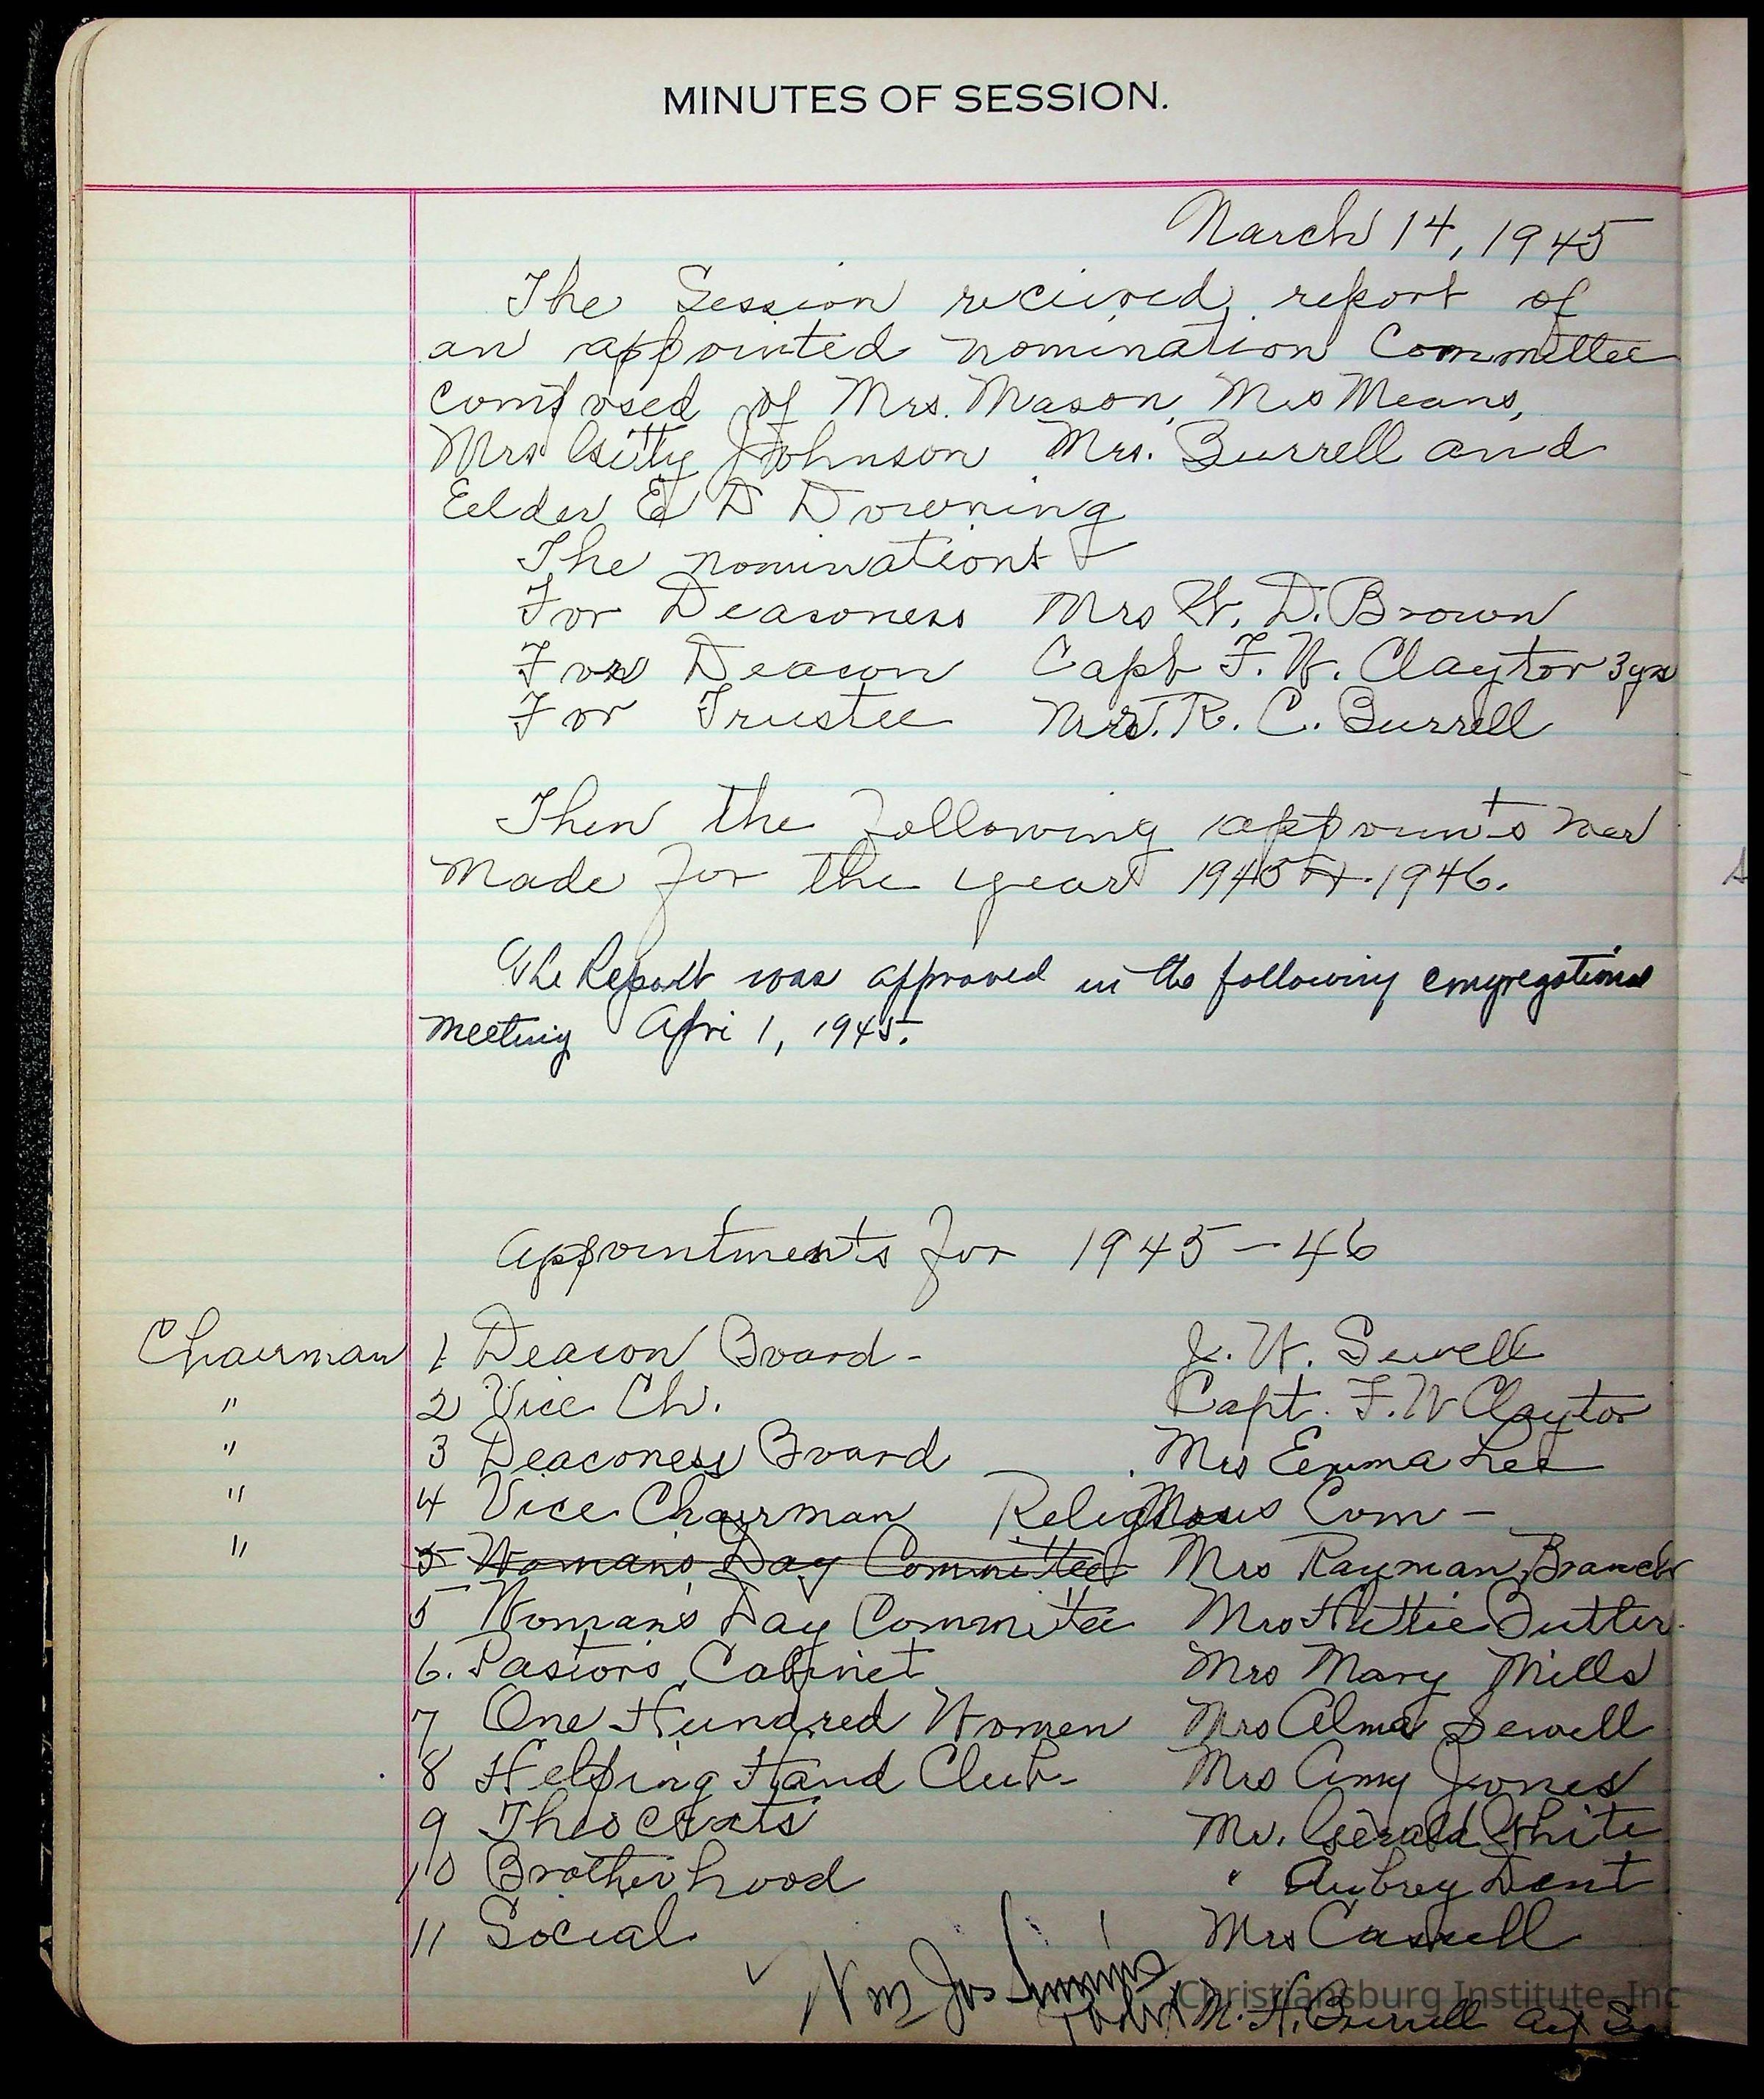 MINUTES OF SESSION.
March 14, 1945
The Session recieved report of
an appointed nomination Committee
composed of Mrs. Mason, Mrs Means,
Mrs Johnson Mrs. Burrell and
Eelder E D Downing
The nominations
For Deaconess Mrs W. D. Brown
For Deacon Capt F. W. Claytor 3yrs
For Trustee Mrs. R. C. Burrell
Then the following appoints wer
made for the year 1945 1946.
The Report was approved in the following congregational
meeting Apri 1, 1945.
Appointments for 1945-46
Chairman 1 Deacon Board - J. W. Sewell
" 2 Vice Ch. Capt. F. W Claytor
" 3 Deaconess Board Mrs Emma Lee
" 4 Vice Chairman Religious Com -
" 5 Woman's Day Committee Mrs Rayman Branch
5 Woman's Day Committee Mrs Hettie Butler
6. Pastors Cabinet Mrs Mary Mills
7 One Hundred Women Mrs Alma Sewell
8 Helping Hand Club - Mrs Amy Jones
9 Theocrats Mr. Gerald White
10 Brotherhood " Aubrey Dent
11 Social Mrs Cassell
Wm Jas Simmons
Christiansburg Institute, Inc
M. H. Burrell